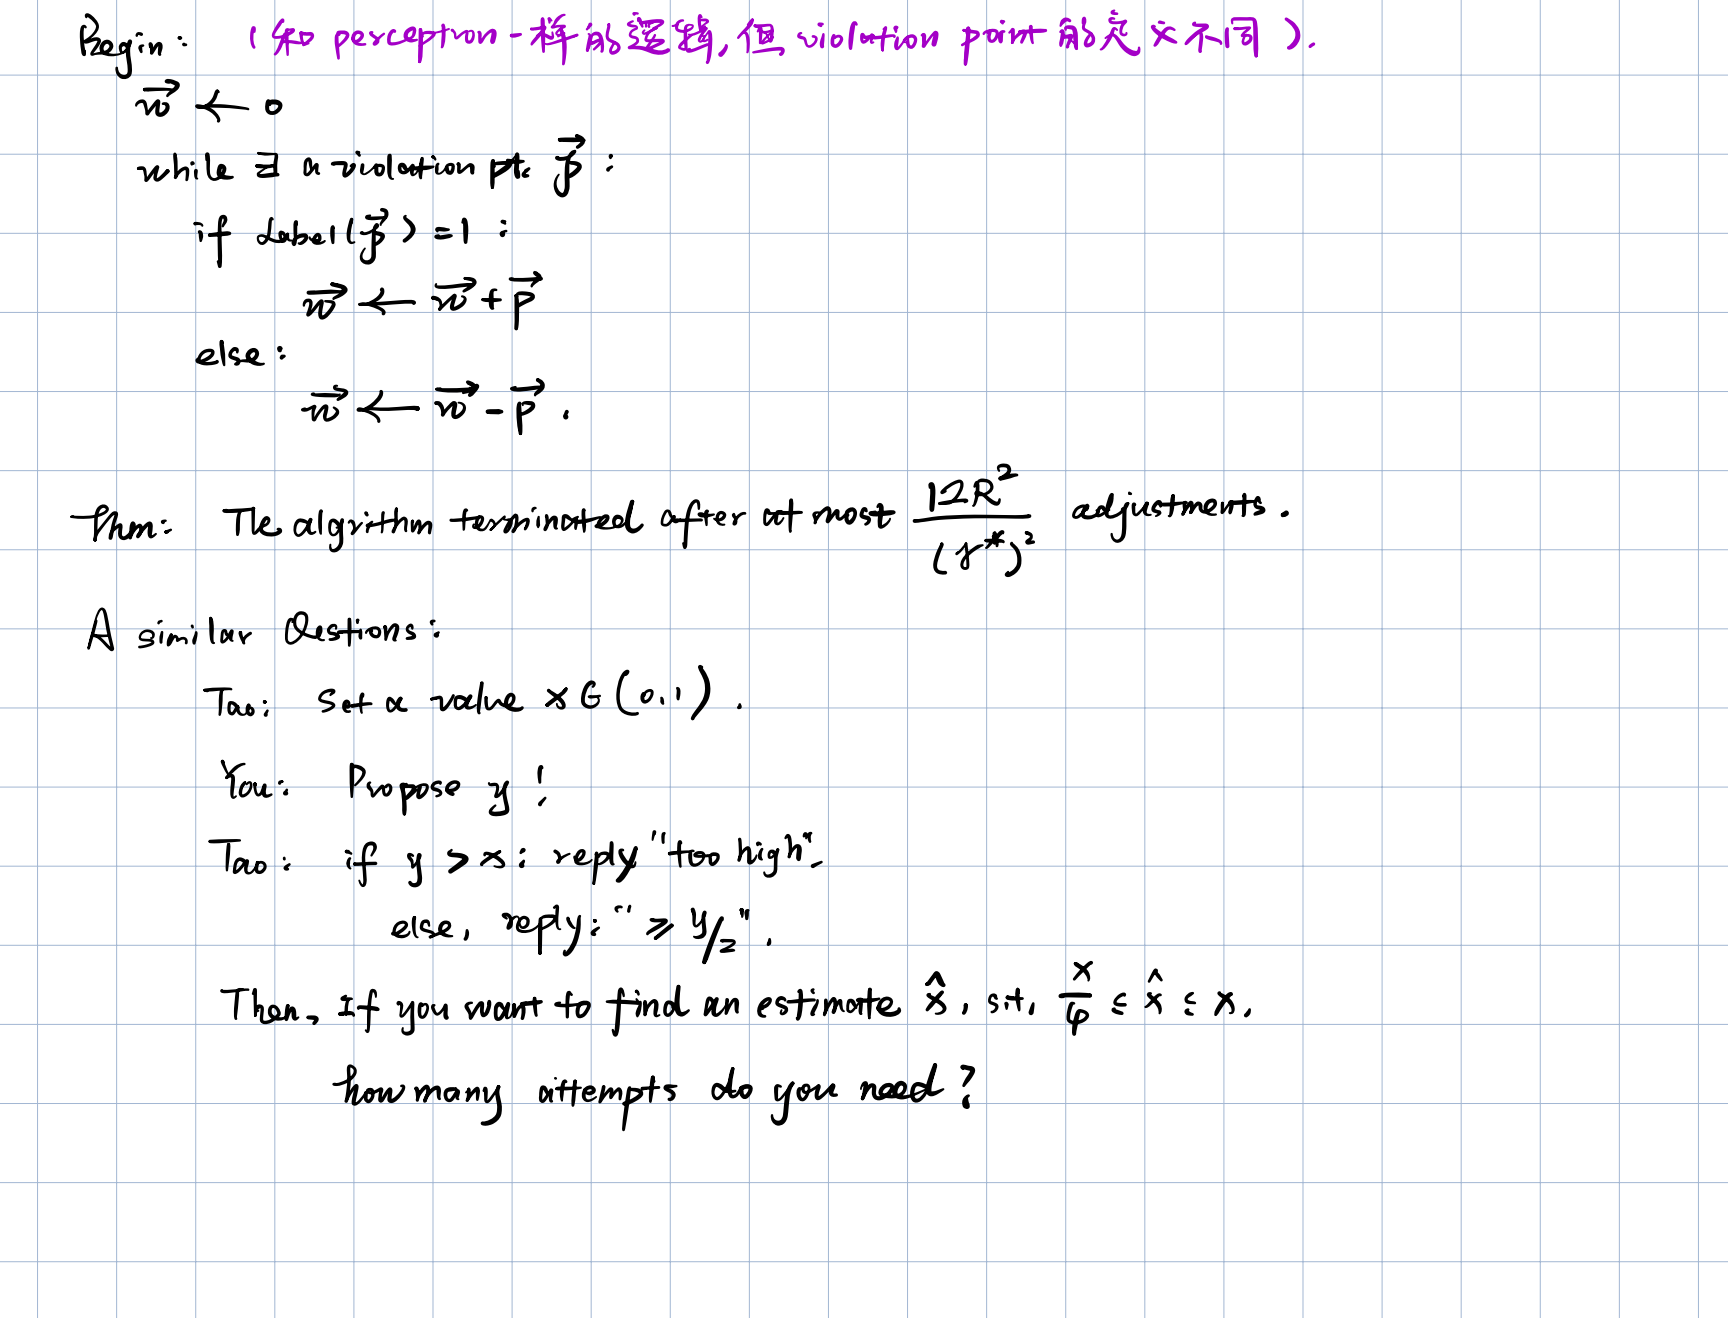 Begin: (和 perceptron 一样的逻辑, 但 violation point 的定义不同).
w⃗ ← 0
while ∃ a violation pt. p⃗ :
if Label(p⃗) = 1 :
w⃗ ← w⃗ + p⃗
else :
w⃗ ← w⃗ - p⃗ .
Thm: The algrithm terminated after at most 12R²/(γ*)² adjustments.
A similar Qestions:
Tao: Set a value x ∈ (0,1) .
You: Propose y !
Tao: if y > x : reply "too high".
else, reply: "≥ y/2".
Then, If you want to find an estimate x̂, s.t. x/4 ≤ x̂ ≤ x,
how many attempts do you need?